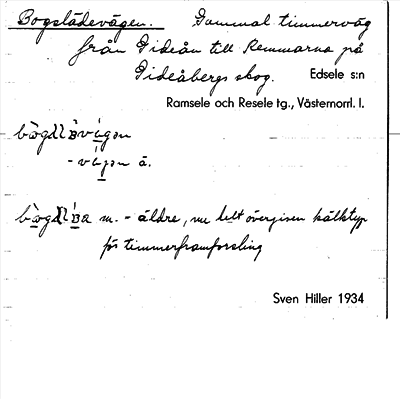 Bogslädevägen. Gammal timmerväg
från Gideån till Remmarna på
Gideåbergs skog. Edsele s:n
Ramsele och Resele tg., Västernorrl. l.
m. - äldre, nu helt övergiven kälktyp
för timmerframforsling
Sven Hiller 1934